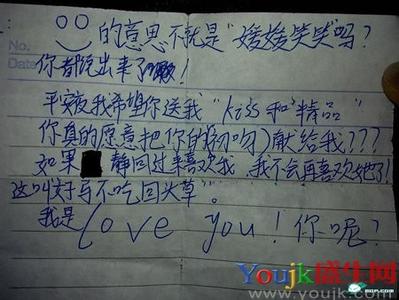 的意思不就是"媛媛笑笑"吗?
No.
Date
你都说出来了!
平安夜我希望你送我"kiss和精品"
你真的愿意把你的初吻)献给我???
如果 静回过来喜欢我,我不会再喜欢她了!
这叫好马不吃回头草"。
我是Love you!你呢?
Youjk盛生网
www.youjk.com
MOP.COM